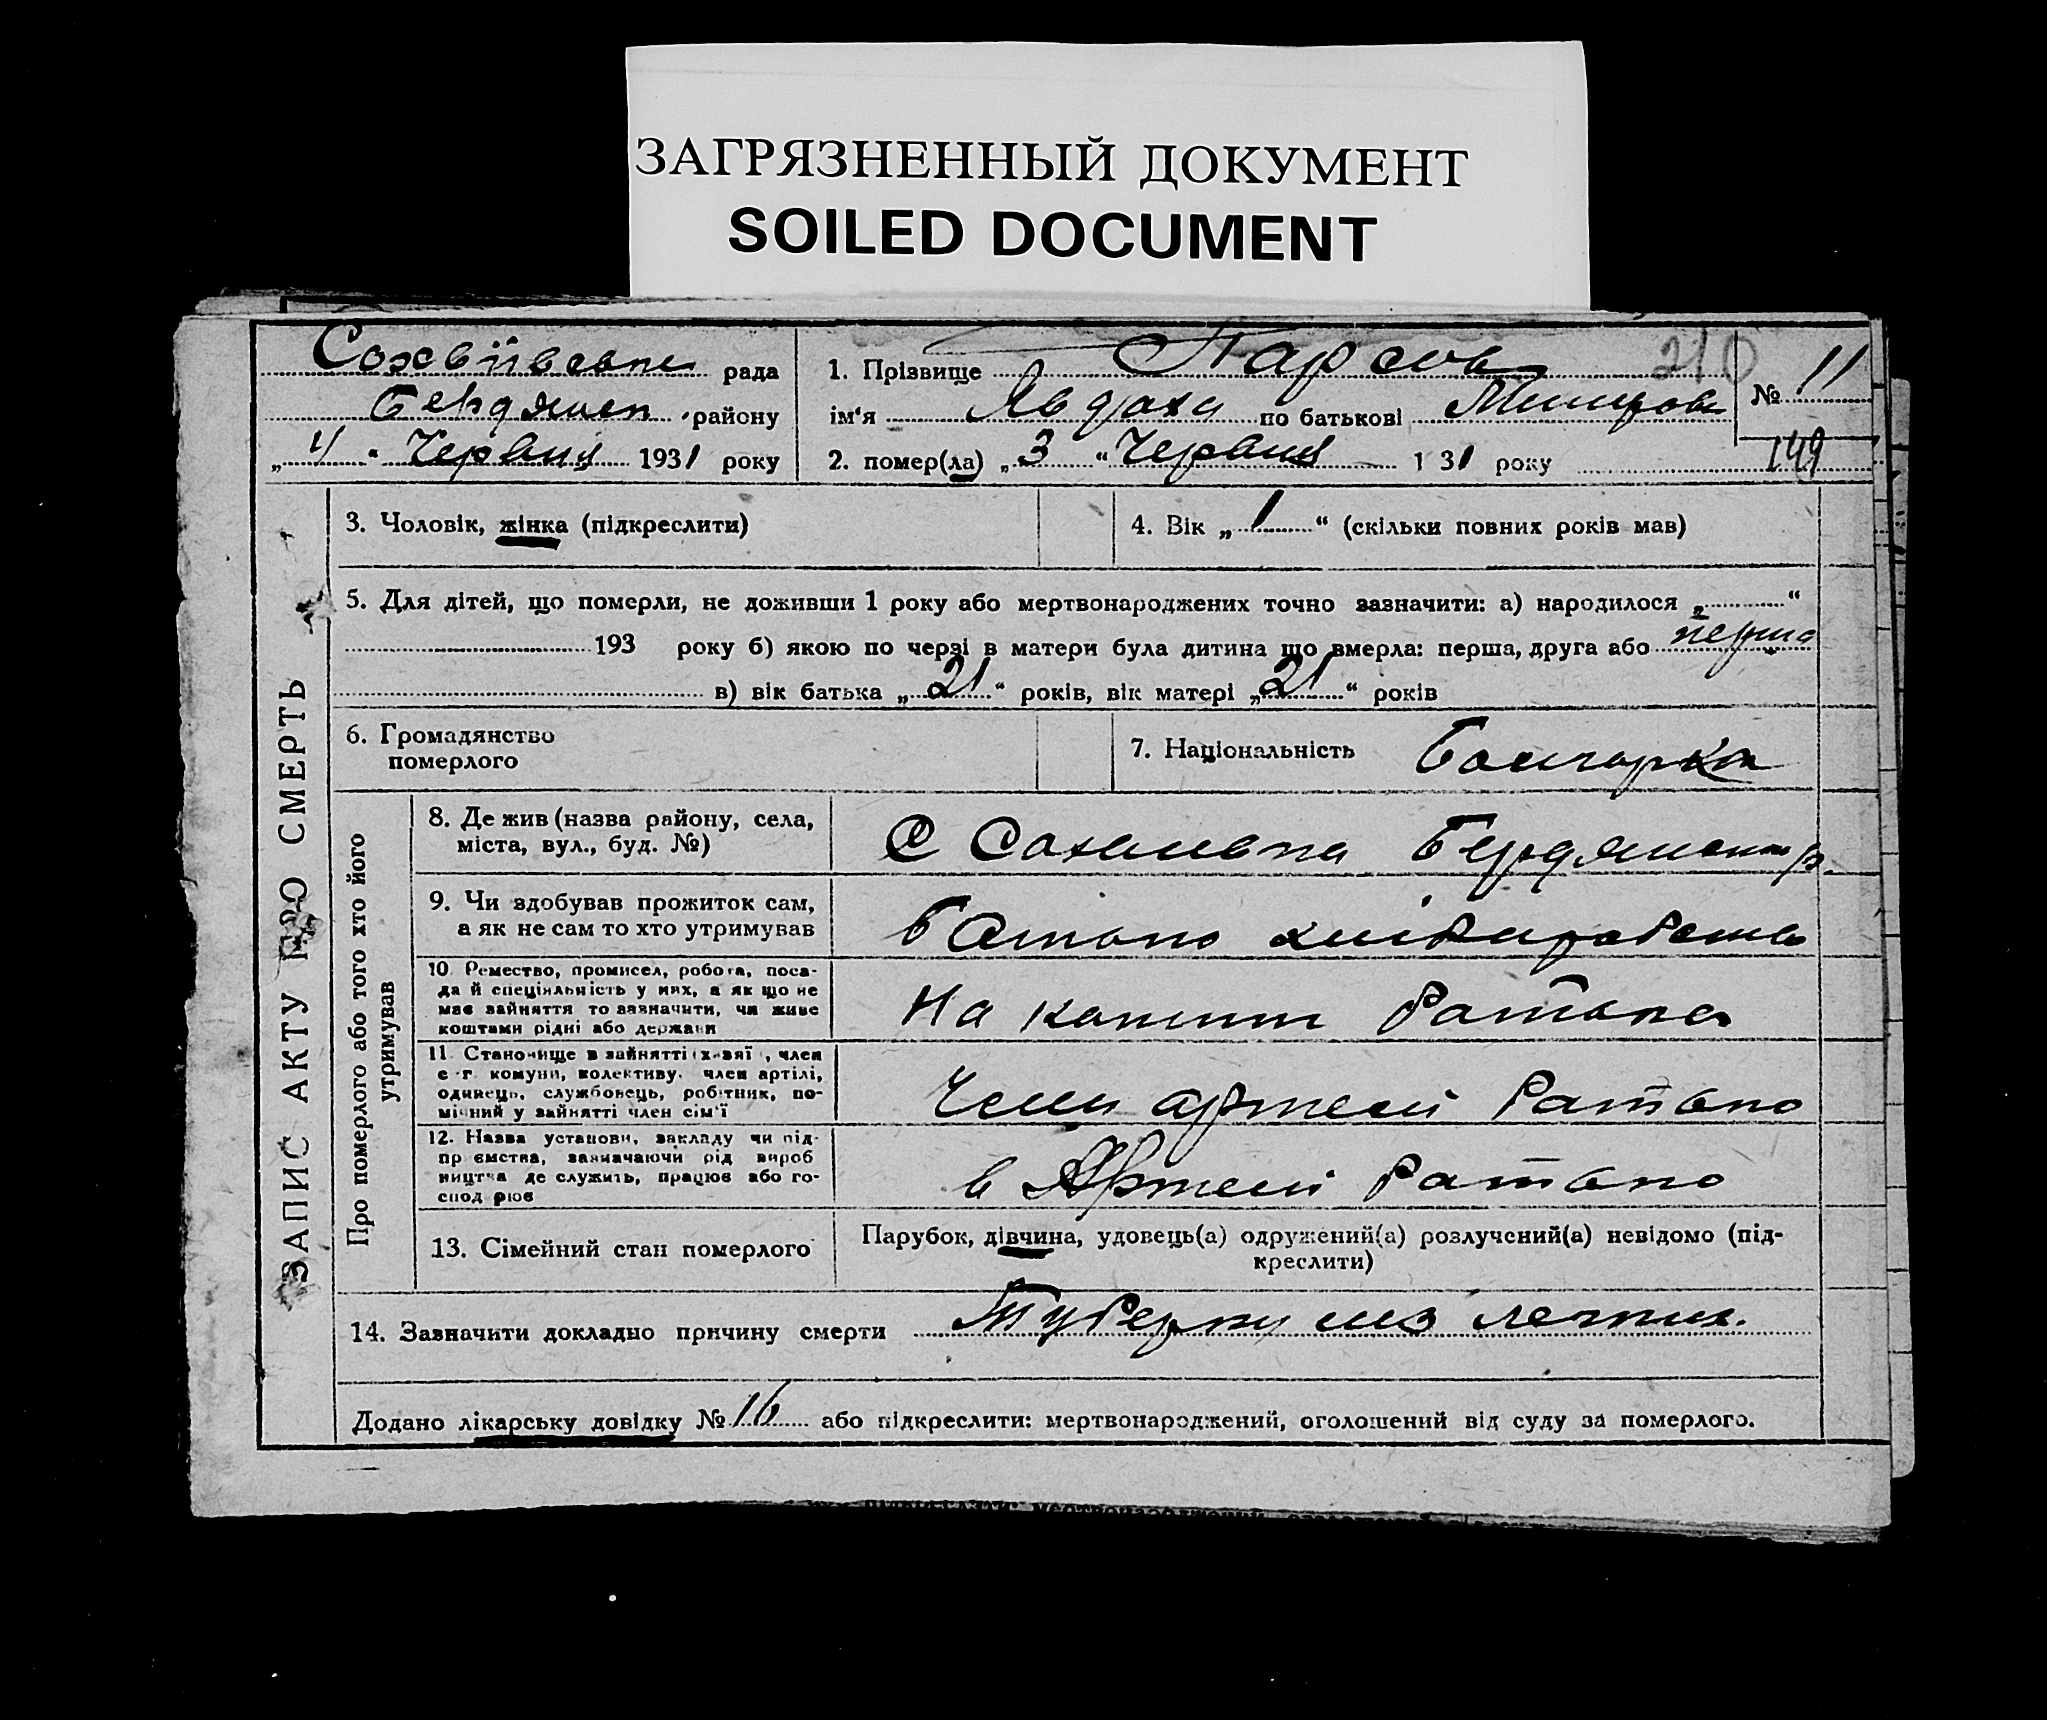 ЗАГРЯЗНЕННЫЙ ДОКУМЕНТ
SOILED DOCUMENT
рада
Бердянск. району
„ 4 “ Червня 1931 року
1. Прізвище Парсов
ім'я Явдоха по батькові
2. помер(ла) „ 3 “ Червня 1 31 року
210
№ 11
149
ЗАПИС АКТУ ПРО СМЕРТЬ
3. Чоловік, жінка (підкреслити)
4. Вік „ 1 “ (скільки повних років мав)
5. Для дітей, що померли, не доживши 1 року або мертвонароджених точно зазначити: а) народилося „ “
193 року б) якою по черзі в матери була дитина що вмерла: перша, друга або перша
в) вік батька „ 21 “ років, вік матері „ 21 “ років
6. Громадянство
померлого
7. Національність Болгарка
Про померлого або того хто його
утримував
8. Де жив (назва району, села,
міста, вул., буд. №)
С Бердянськ р.
9. Чи здобував прожиток сам,
а як не сам то хто утримував
Батько хлібороб
10. Ремество, промисел, робота, поса-
да й спеціяльність у них, а як що не
має зайняття то зазначити, чи живе
коштами рідні або держави
На кошти батька
11. Становище в зайнятті (хазяї, член
с-г. комуни, колективу, член артілі,
одинець, службовець, робітник, по-
мічний у зайнятті член сім'ї
Член артелі батько
12. Назва установи, закладу чи під-
приємства, зазначаючи рід вироб
ництва де служить, працює або го-
сподарює
в Артелі батько
13. Сімейний стан померлого
Парубок, дівчина, удовець(а) одружений(а) розлучений(а) невідомо (під-
креслити)
14. Зазначити докладно причину смерти Туберкульоз легких.
Додано лікарську довідку № 16 або підкреслити: мертвонароджений, оголошений від суду за померлого.